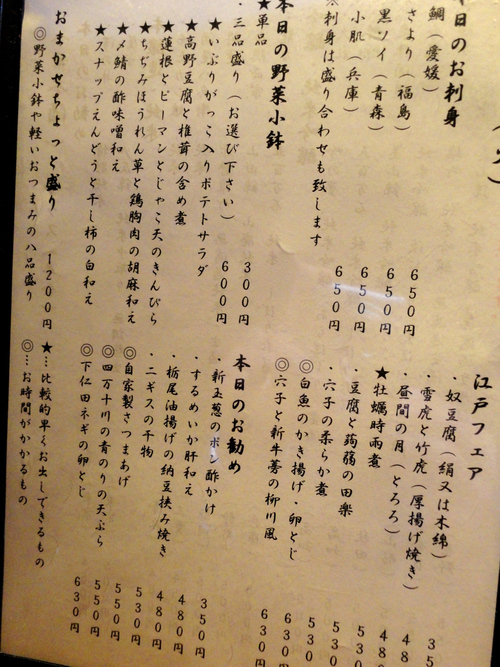 本日のお刺身
鯛（愛媛） 650円
さより（福島） 650円
黒ソイ（青森） 650円
小肌（兵庫） 650円
※刺身は盛り合わせも致します
本日の野菜小鉢
★単品 300円
・三品盛り（お選び下さい） 600円
★いぶりがっこ入りポテトサラダ
★高野豆腐と椎茸の含め煮
★蓮根とピーマンとじゃこ天のきんぴら
★ちぢみほうれん草と鶏胸肉の胡麻和え
★〆鯖の酢味噌和え
★スナップえんどうと干し柿の白和え
おまかせちょっと盛り 1200円
◎野菜小鉢や軽いおつまみの八品盛り
江戸フェア
・奴豆腐（絹又は木綿） 35
・雪虎と竹虎（厚揚げ焼き） 48
・昼間の月（とろろ） 48
★牡蠣時雨煮 53
・豆腐と蒟蒻の田楽 53
・穴子の柔らか煮 530
◎白魚のかき揚げ・卵とじ 630
◎穴子と新牛蒡の柳川風 630
本日のお勧め
・新玉葱のポン酢かけ 350
・するめいか肝和え 480円
・栃尾油揚げの納豆挟み焼き 480円
・ニギスの干物 530円
◎自家製さつまあげ 550円
◎四万十川の青のりの天ぷら 550円
◎下仁田ネギの卵とじ 630円
★…比較的早くお出しできるもの
◎…お時間がかかるもの